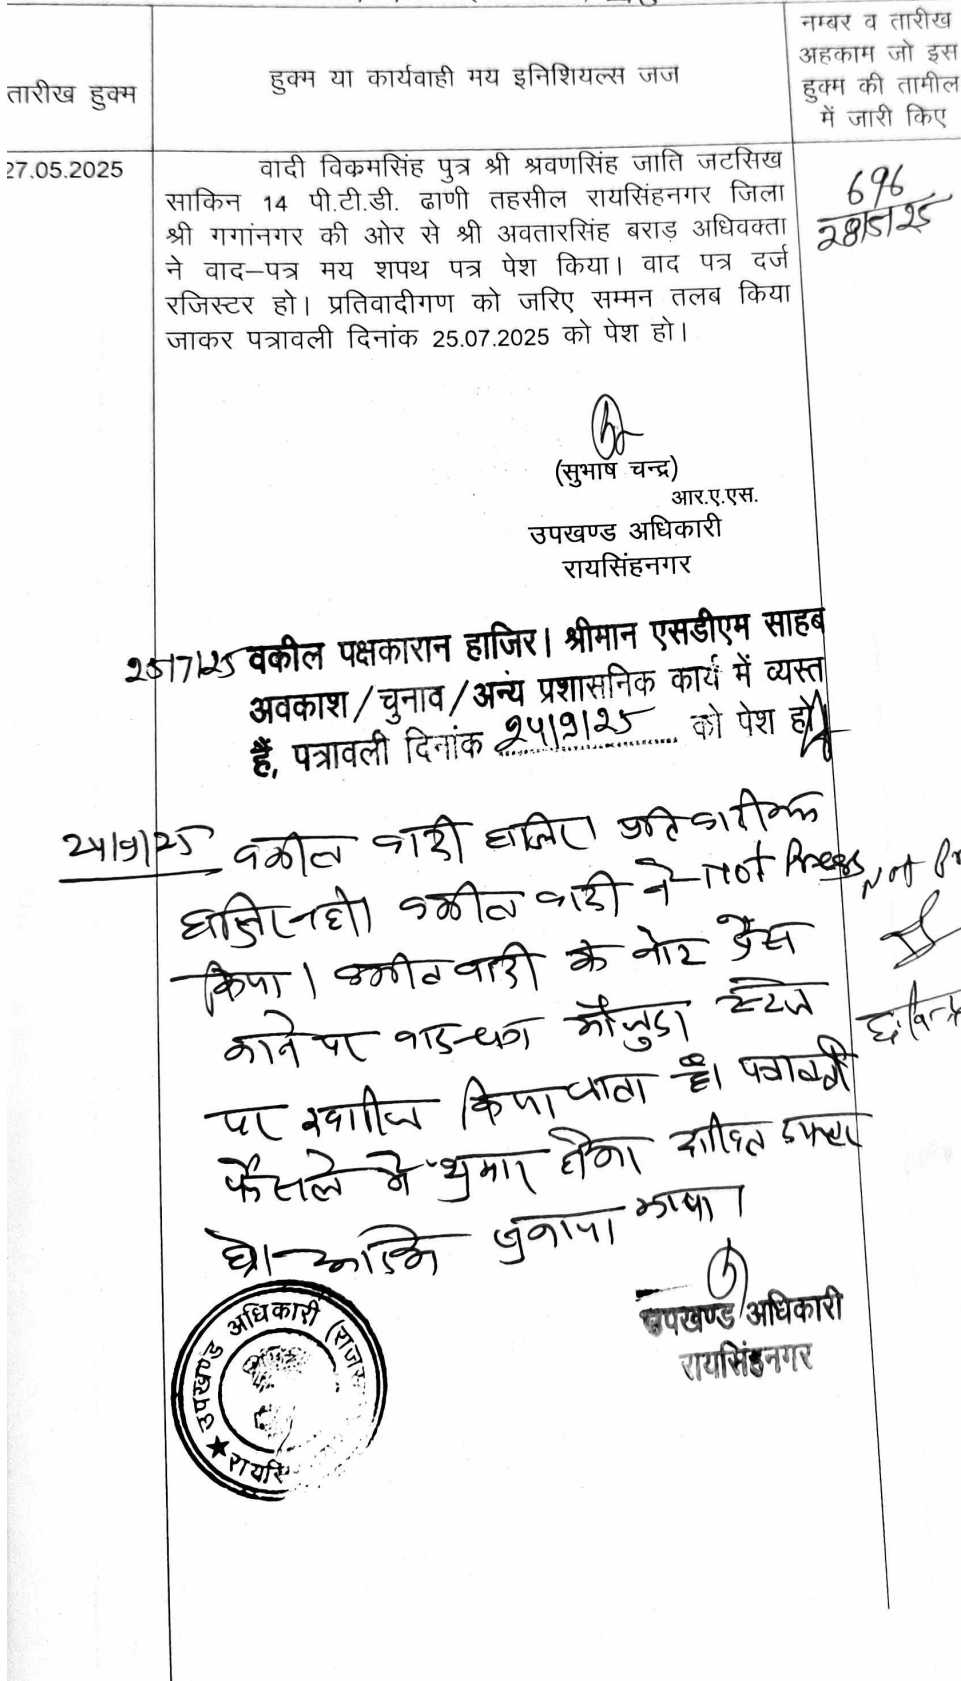 तारीख हुक्म
हुक्म या कार्यवाही मय इनिशियल्स जज
नम्बर व तारीख
अहकाम जो इस
हुक्म की तामील
में जारी किए
27.05.2025
वादी विक्रमसिंह पुत्र श्री श्रवणसिंह जाति जटसिख
साकिन 14 पी.टी.डी. ढाणी तहसील रायसिंहनगर जिला
श्री गगांनगर की ओर से श्री अवतारसिंह बराड़ अधिवक्ता
ने वाद–पत्र मय शपथ पत्र पेश किया। वाद पत्र दर्ज
रजिस्टर हो। प्रतिवादीगण को जरिए सम्मन तलब किया
जाकर पत्रावली दिनांक 25.07.2025 को पेश हो।
696
28/5/25
(सुभाष चन्द्र)
आर.ए.एस.
उपखण्ड अधिकारी
रायसिंहनगर
25/7/25 वकील पक्षकारान हाजिर। श्रीमान एसडीएम साहब
अवकाश/चुनाव/अन्य प्रशासनिक कार्य में व्यस्त
हैं, पत्रावली दिनांक 24/9/25 को पेश हो
24/9/25 वकील वादी हाजिर। प्रतिवादीगण
हाजिर नहीं। वकील वादी ने Not Press
किया। वकील वादी के नोट प्रेस
करने पर वाद-पत्र मौजुदा स्टेज
पर खारीज किया जाता है। पत्रावली
फैसले में शुमार होकर दाखिल दफ्तर
हो। सुनाया गया।
Not
उपखण्ड अधिकारी
रायसिंहनगर
उपखण्ड अधिकारी